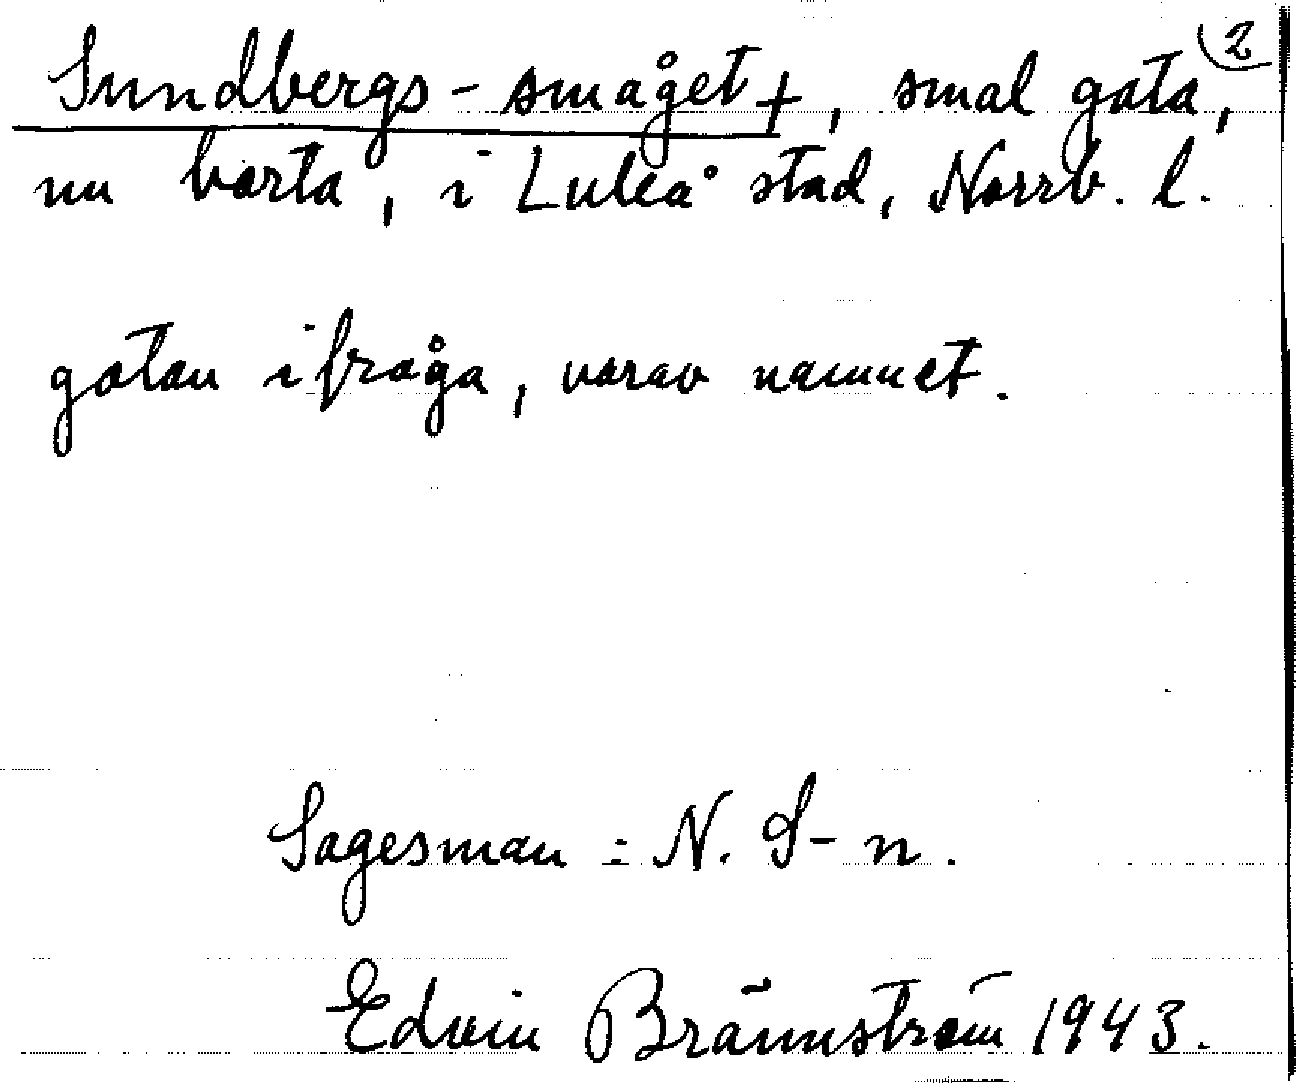 2
Sundbergs-smaget +, smal gata,
nu borta, i Luleå stad, Norrb. l.
gatan ifråga, varav namnet.
Sagesman: N. S-n.
Edvin Brännström 1943.